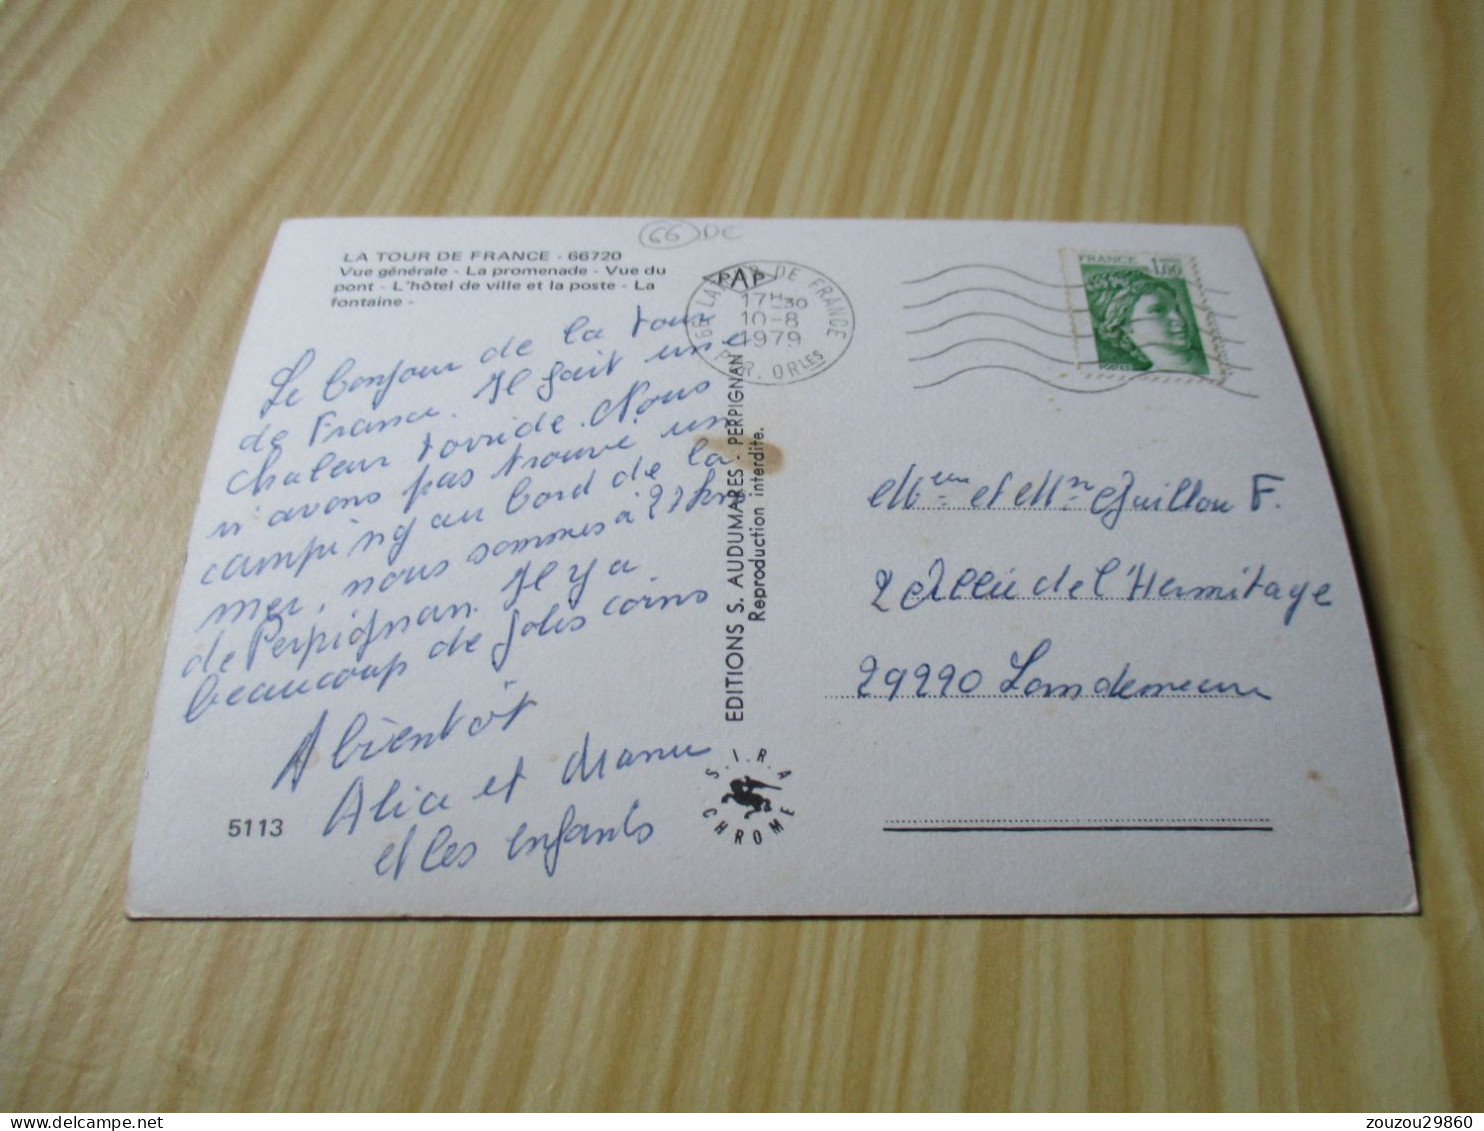 66 DE
LA TOUR DE FRANCE - 66720
Vue générale - La promenade - Vue du
pont - L'hôtel de ville et la poste - La
fontaine -
Le bonjour de la tour
de France. Il fait une
chaleur torride. Nous
n'avons pas trouvé un
camping au bord de la
mer, nous sommes à 27 km
de Perpignan. Il y a
beaucoup de jolis coins
A bientôt
Alice et Manu
et les enfants
5113
EDITIONS S. AUDUMARES - PERPIGNAN
Reproduction interdite.
S.I.R.A
CHROME
66 LA TOUR DE FRANCE
PAP
17H30
10-8
1979
P. OR.LES
FRANCE 1,00
POSTES
Meur et Mme Guillou F.
2 Allée de l'Hermitage
29220 Landerneau
zouzou29860